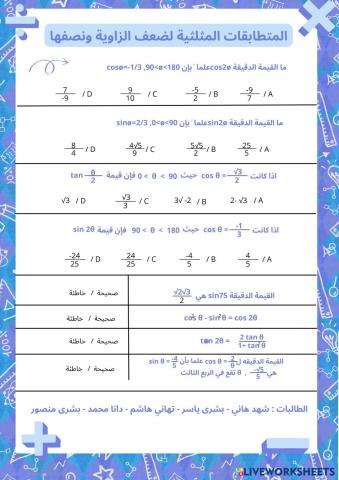 المتطابقات المثلثية لضعف الزاوية ونصفها
ما القيمة الدقيقة cos2ø علما بإن cosø=-1/3 ,90<ø<180
-9/7 / A   -5/2 / B   9/10 / C   7/-9 / D
ما القيمة الدقيقة sin2ø علما بإن sinø=2/3 ,0<ø<90
25/5 / A   5√5/2 / B   4√5/9 / C   8/4 / D
اذا كانت cos θ = √3/2 حيث 0 < θ < 90 فإن قيمة tan θ/2
2- √3 / A   3√ -2 / B   √3/3 / C   √3 / D
اذا كانت cos θ = -1/3 حيث 90 < θ < 180 فإن قيمة sin 2θ
4/5 / A   -4/5 / B   24/25 / C   -24/25 / D
القيمة الدقيقة sin75 هي √2√3/2   صحيحة / خاطئة
cos²θ - sin²θ = cos 2θ   صحيحة / خاطئة
tan 2θ = 2 tan θ/1+ tan²θ   صحيحة / خاطئة
القيمة الدقيقه ل cos θ = θ/2 علما بأن sin θ = -4/5
هي -√5/5 , θ تقع في الربع الثالث   صحيحة / خاطئة
الطالبات : شهد هاني - بشرى ياسر - تهاني هاشم - دانا محمد - بشرى منصور
LIVEWORKSHEETS